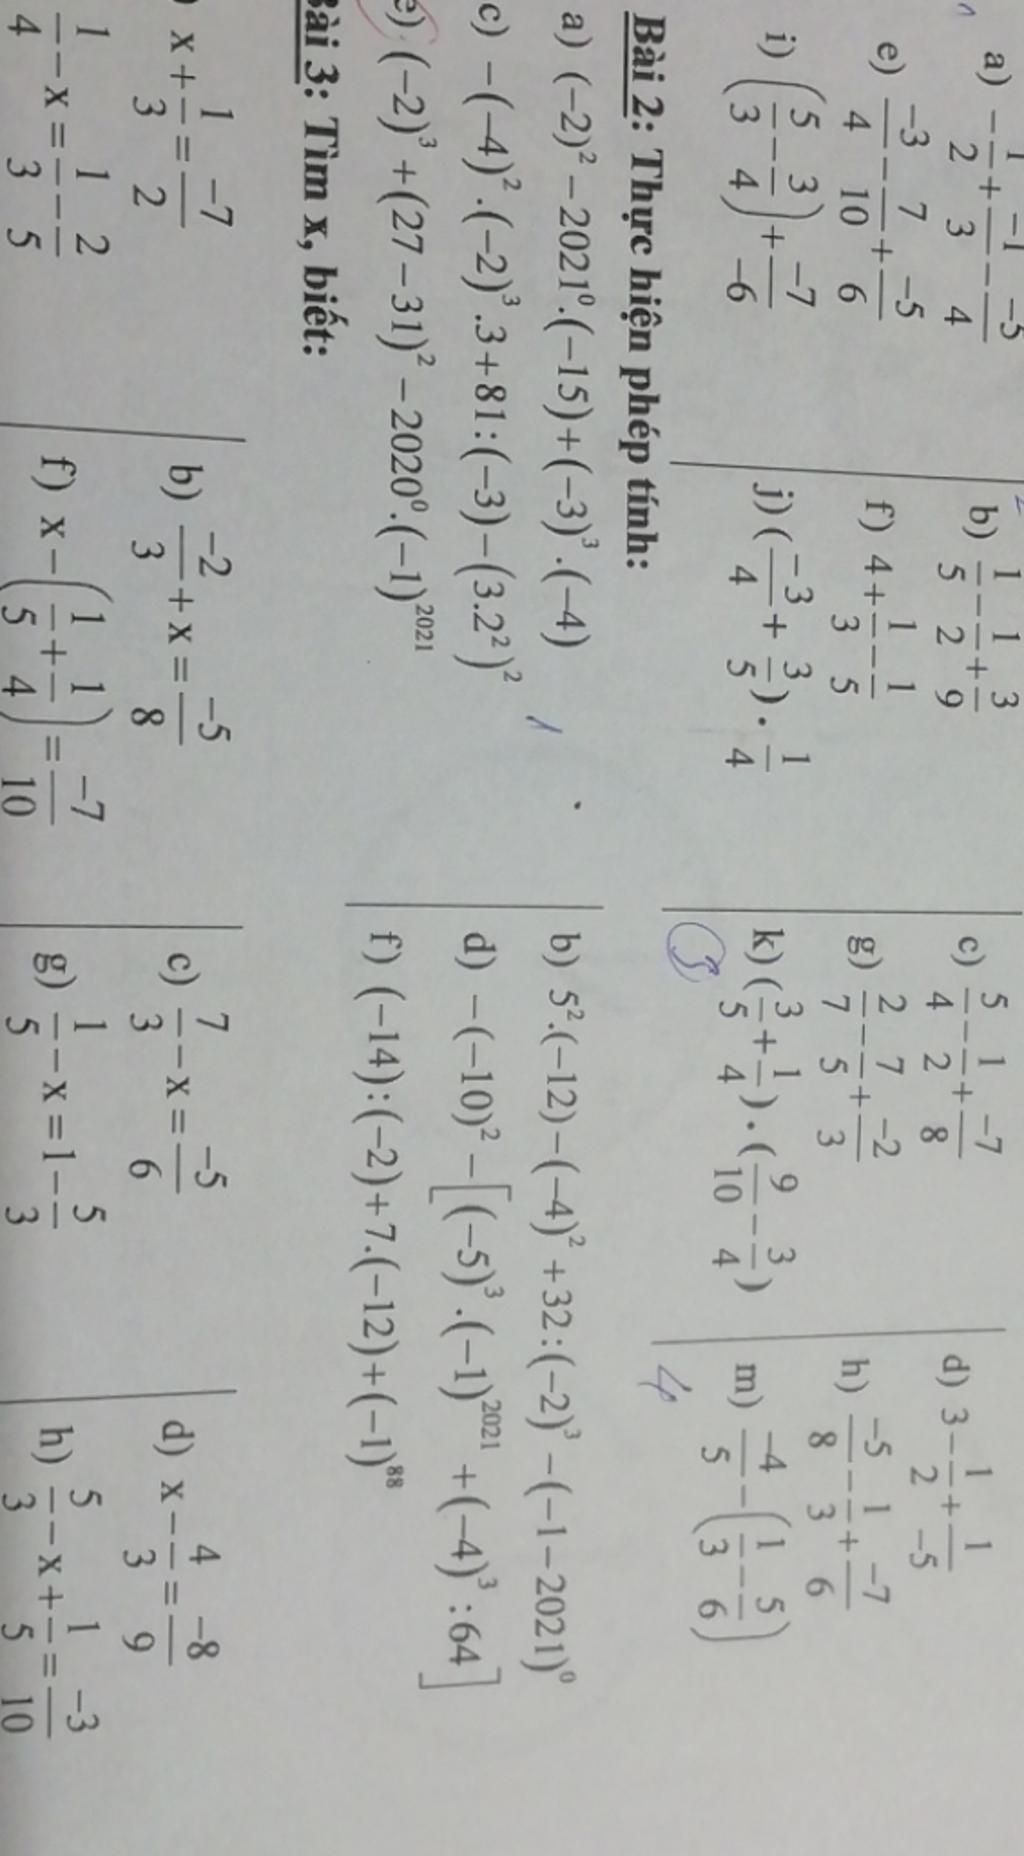 a) -1/2 + -1/3 - -5/4
b) 1/5 - 1/2 + 3/9
c) 5/4 - 1/2 + -7/8
d) 3 - 1/2 + 1/-5
e) -3/4 - 7/10 + -5/6
f) 4 + 1/3 - 1/5
g) 2/7 - 7/5 + -2/3
h) -5/8 - 1/3 + -7/6
i) (5/3 - 3/4) + -7/-6
j) (-3/4 + 3/5) . 1/4
k) (3/5 + 1/4) . (9/10 - 3/4)
m) -4/5 - (1/3 - 5/6)
Bài 2: Thực hiện phép tính:
a) (-2)² - 2021⁰.(-15) + (-3)³.(-4)
b) 5².(-12) - (-4)² + 32:(-2)³ - (-1-2021)⁰
c) -(-4)².(-2)³.3 + 81:(-3) - (3.2²)²
d) -(-10)² - [(-5)³.(-1)²⁰²¹ + (-4)³:64]
e) (-2)³ + (27-31)² - 2020⁰.(-1)²⁰²¹
f) (-14):(-2) + 7.(-12) + (-1)⁸⁸
Bài 3: Tìm x, biết:
) x + 1/3 = -7/2
b) -2/3 + x = -5/8
c) 7/3 - x = -5/6
d) x - 4/3 = -8/9
1/4 - x = 1/3 - 2/5
f) x - (1/5 + 1/4) = -7/10
g) 1/5 - x = 1 - 5/3
h) 5/3 - x + 1/5 = -3/10